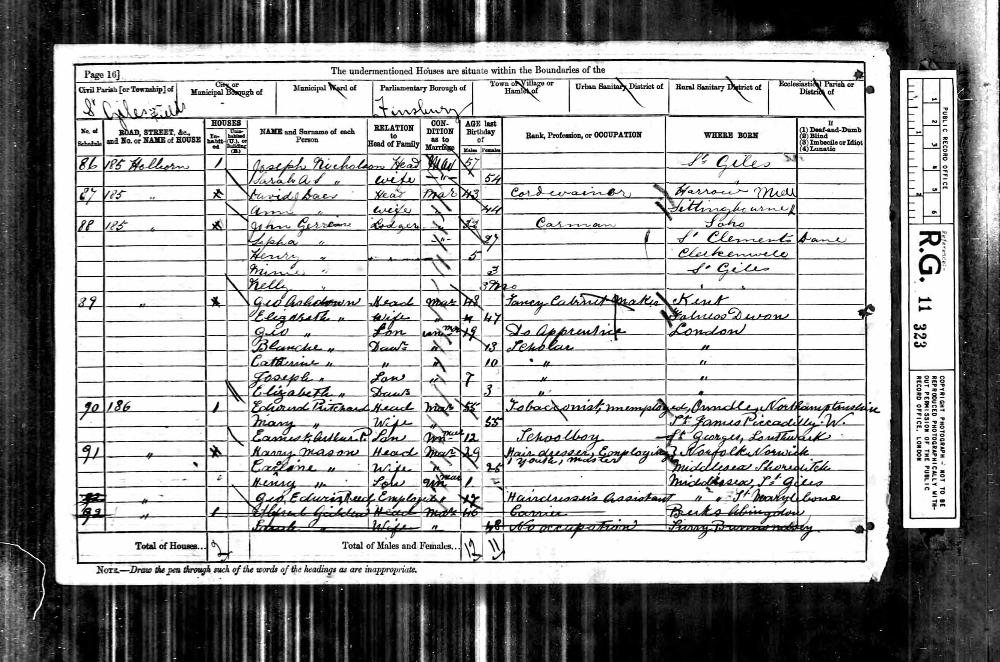 Page 16]
The undermentioned Houses are situate within the Boundaries of the
Civil Parish [or Township] of
City or Municipal Borough of
Municipal Ward of
Parliamentary Borough of
Town or Village or Hamlet of
Urban Sanitary District of
Rural Sanitary District of
Ecclesiastical Parish or District of
St Giles Fields
Finsbury
No. of Schedule
ROAD, STREET, &c., and No. or NAME of HOUSE
HOUSES
Inhabited
Uninhabited (U.), or Building (B.)
NAME and Surname of each Person
RELATION to Head of Family
CONDITION as to Marriage
AGE last Birthday of
Males
Females
Rank, Profession, or OCCUPATION
WHERE BORN
If
(1) Deaf-and-Dumb
(2) Blind
(3) Imbecile or Idiot
(4) Lunatic
86 185 Holborn 1 Joseph Nicholson Head Mar 57 St Giles
Sarah A. " Wife " 54
87 185 " David Daes Head Mar 43 Cordwainer Harrow Midd
Ann " Wife " 44 Sittingbourne
88 185 " John Lodger 32 Carman Soho
" " 27 St Clements Dane
Henry " 5 Clerkenwell
Minnie " 3 St Giles
Nelly " " "
89 " Geo Ashdown Head Mar 48 Fancy Cabinet Maker Kent
Elizabeth " Wife " 47 Devon
Geo " Son 19 Do Apprentice London
Blanche " Daur " 13 Scholar "
Catherine " " " 10 " "
Joseph " Son " 7 " "
Elizabeth " Daur 3 "
90 186 1 Edward Pritchard Head Mar 55 Tobacconist, unemployed Oundle, Northamptonshire
Mary " Wife " 55 St James Piccadilly. W.
Arthur P Son 12 Schoolboy St Georges, Southwark
91 " Harry Mason Head Mar 29 Hairdresser, Employing Norfolk Norwich
1 Youth, Master
" Wife " 25 Middlesex Shoreditch
Henry " Son 1 Middlesex St Giles
" Geo Edwin Reed 17 Hairdressers Assistant " " St Marylebone
" 1 Alfred Head Mar 46 Berks Abingdon
Sarah Wife 48 No occupation Surry Bermondsey
Total of Houses... 2
Total of Males and Females... 12 11
NOTE.—Draw the pen through such of the words of the headings as are inappropriate.
PUBLIC RECORD OFFICE
1
2
3
4
5
6
Reference:-
RG. 11
323
COPYRIGHT PHOTOGRAPH - NOT TO BE REPRODUCED PHOTOGRAPHICALLY WITHOUT PERMISSION OF THE PUBLIC RECORD OFFICE, LONDON